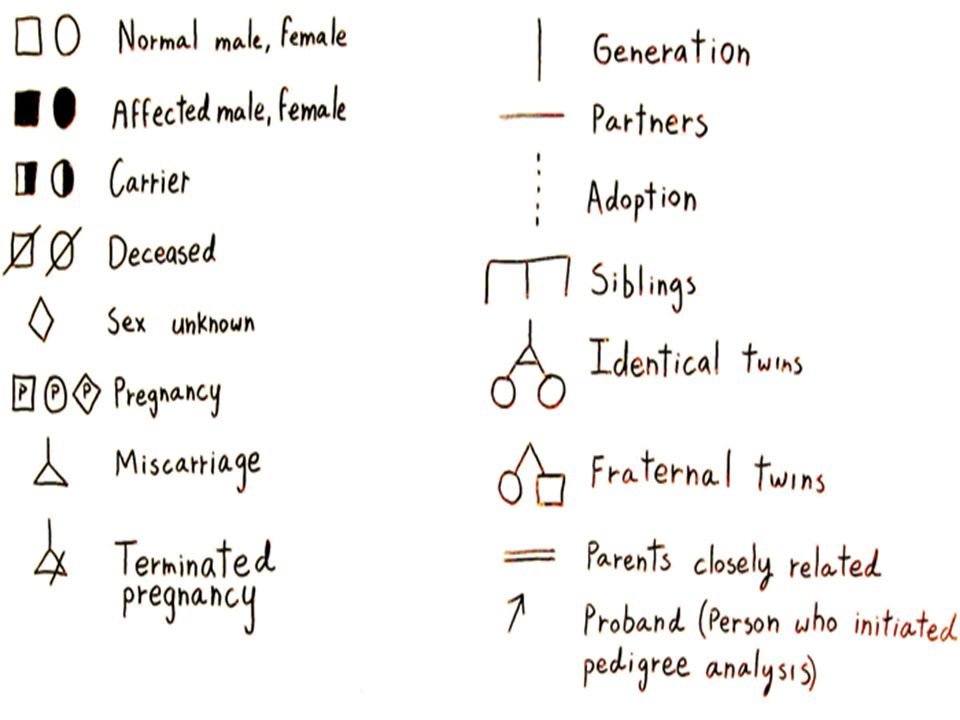 Normal male, female
Affected male, female
Carrier
Deceased
Sex unknown
P P P Pregnancy
Miscarriage
Terminated
pregnancy
Generation
Partners
Adoption
Siblings
Identical twins
Fraternal twins
Parents closely related
Proband (Person who initiated
pedigree analysis)